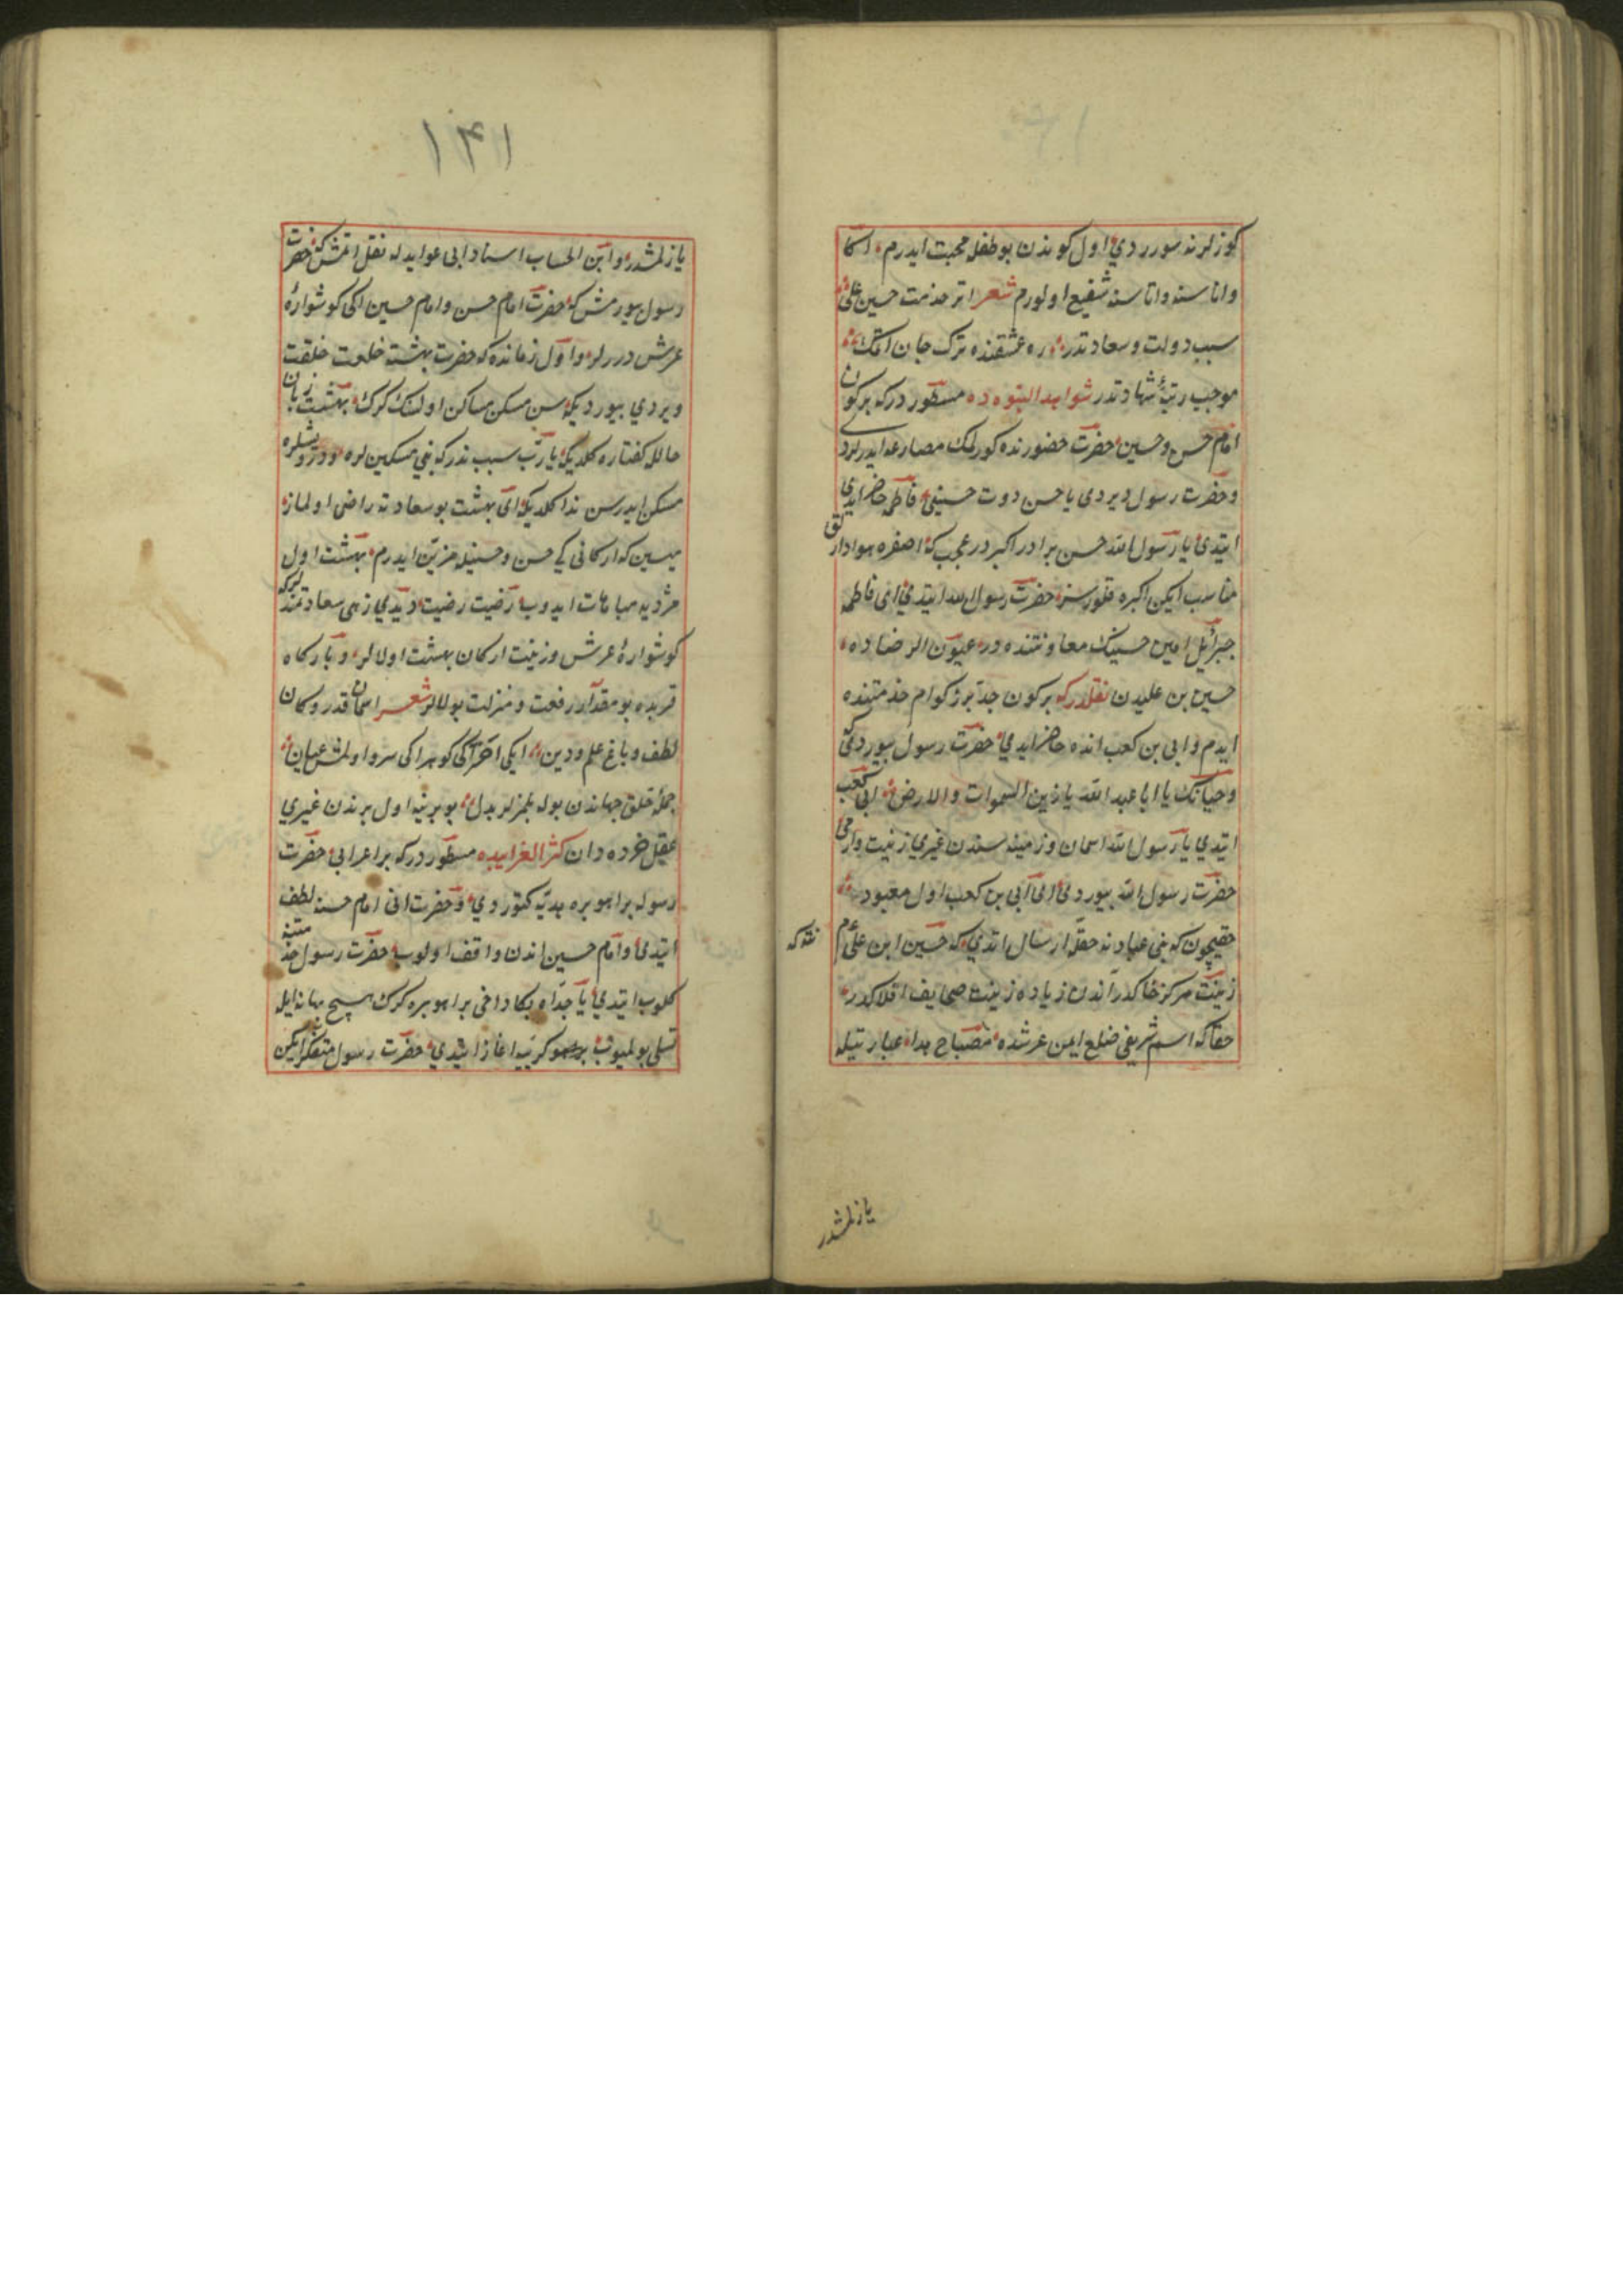 كوزلرنه سورردی اول كوندن بو طفله محبت ایدرم اكا
و اناسنه و اتاسنه شفیع اولورم شعر اثر خدمت حسین علی
سبب دولت و سعادتدر ره عشقنده ترك جان اتمك
موجب رتبهٔ شهادتدر شواهد النبوه ده مسطوردركه بركون
امام حسن و حسین حضرت حضورنده كورلك مصارعه ایدرلردی
و حضرت رسول دیردی یا حسن دوت حسینی فاطمه حاضر ایدی
ایتدی یا رسول الله حسن برادر اكبردر عجب كه اصغره هوادارلق
مناسب ایكن اكبره قلورسز حضرت رسول الله ایتدی ای فاطمه
جبرائیل امین حسینك معاونتنده در عیون الرضاده
حسین بن علیدن نقلدركه بركون جد بزركوارم خدمتنده
ایدم و ابی بن كعب انده حاضر ایدی حضرت رسول بیوردی كه
و حیاتك یا ابا عبد الله یا زین السموات والارض ابی كعب
ایتدی یا رسول الله اسمان و زمینه سندن غیری زینت وارمی
حضرت رسول الله بیوردی ای ابی بن كعب اول معبود
حقیچون كه بنی عبادنه حقله ارسال اتدی كه حسین ابن علی م
نقدكه
زینت مركز خاكدر اندن زیاده زینت صحایف افلاكدر
حقا كه اسم شریفی ضلع ایمن عرشده مصباح هدا عبارتیله
یازلمشدر
۱۴۱
یازلمشدر و ابن الحساب اسناد ابی عوایدله نقل اتمش كه حضرت
رسول بیورمش كه حضرت امام حسن و امام حسین اكی كوشوارهٔ
عرش دررلر و اول زمانده كه حضرت بهشته خلعت خلقت
ویردی بیوردیكه سن مسكن مساكن اولسك كرك بهشت زبان
حالله كفتاره كلدیكه یا رب سبب ندركه بنی مسكین لره و درویشلره
مسكن ایدرسن ندا كلدیكه ای بهشت بو سعادته راضی اولماز
میسین كه اركانی كی حسن و حسینله مزین ایدرم بهشت اول
مژدیه مباهات ایدوب رضیت رضیت دیدی زهی سعادتمندلركه
كوشوارهٔ عرش و زینت اركان بهشت اولالر و باركاه
قربده بو مقدار رفعت و منزلت بولالر شعر اسمان قدر و كان
لطف و باغ علم و دین ایكی اختر اكی كوهر اكی سرو اولمش عیان
جملهٔ خلق جهاندن بوله بلمزلر بدل بو برینه اول برندن غیری
عقل خرده دان كنز الغرایبده مسطوردركه بر اعرابی حضرت
رسوله بر اهو بره هدیه كتوردی و حضرت انی امام حسنه لطف
ایتدی و امام حسین اندن واقف اولوب حضرت رسول خدمتنه
كلوب ایتدی یا جداه بكا داخی بر اهو بره كرك هیچ بهانه ایله
تسلی بولمیوب كریه اغاز ایتدی حضرت رسول متفكر ایكن